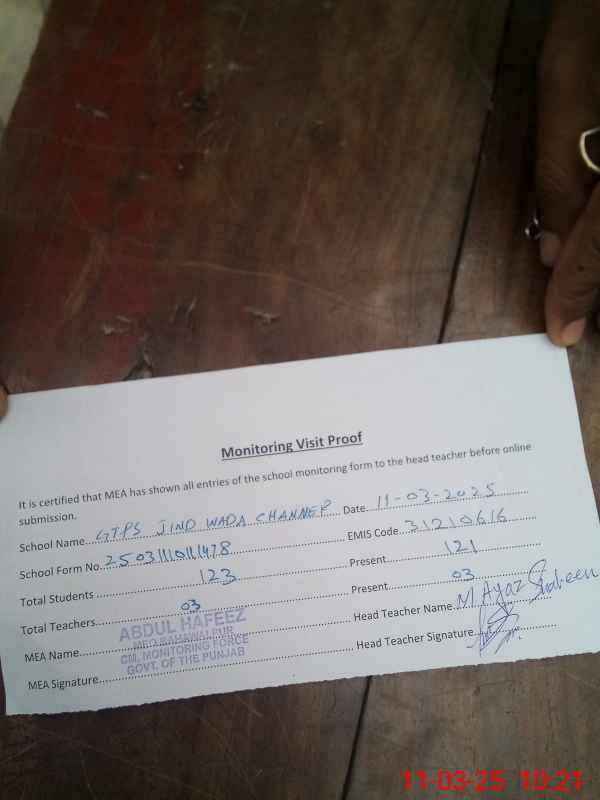 Monitoring Visit Proof
It is certified that MEA has shown all entries of the school monitoring form to the head teacher before online
submission.
School Name....GTPS JIND WADA CHANNER.... Date....11-03-2025....
School Form No..25031110111478.... EMIS Code..31210616....
Total Students....123.... Present....121....
Total Teachers....03.... Present....03....
MEA Name.... Head Teacher Name..M Ayaz Shaheen
MEA Signature.... Head Teacher Signature....
ABDUL HAFEEZ
MEO BAHAWALPUR
CM, MONITORING FORCE
GOVT. OF THE PUNJAB
11-03-25 10:21